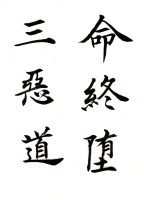 命終堕
三惡道